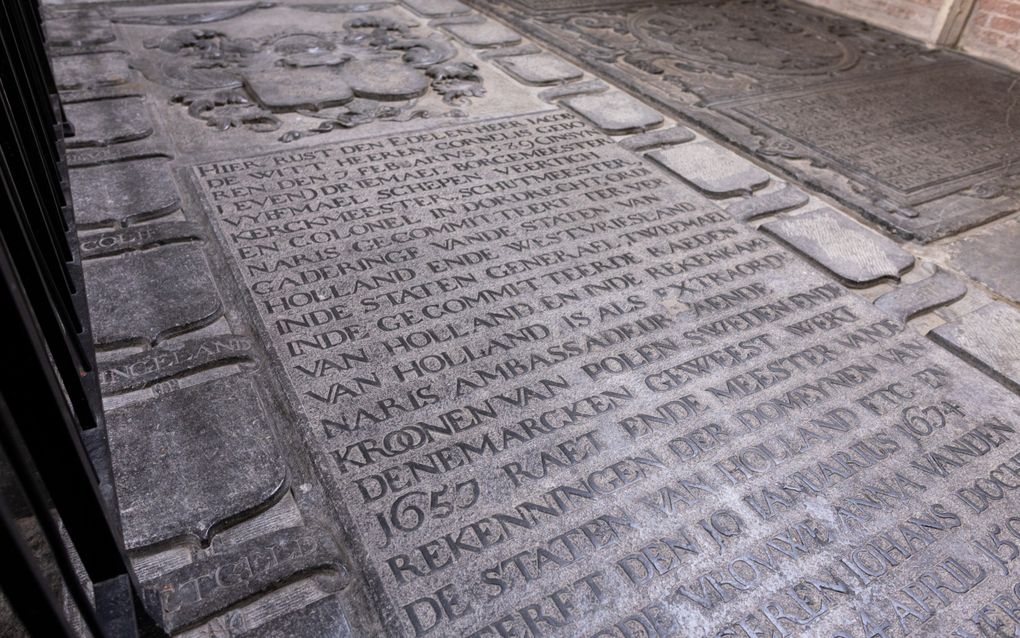 HIER RUST DEN EDELEN HEER IACOB
DE WITT, HEEREN CORNELIS GEB
TEN DEN 7 FEBRARIUS 1589 GINSYN
LEVEN DRIEMAEL BORGEMEESTER
VYFMAEL SCHEPEN VEERTICH
KERCKMEESTER SCHUTMEESTER
EN COLONEL IN DORDRECHT ORDI
NARIS GECOMMITTEERT TER VER
GADERINGE VANDE STATEN VAN
HOLLAND ENDE WESTVRIESLAND
INDE STATEN GENERAEL TWEEMAEL
INDE GECOMMITTEERDE RAEDEN
VAN HOLLAND EN INDE REKENCAMER
VAN HOLLAND IS ALS EXTRAORDI
NARIS AMBASSADEUR AENDE
KROONEN VAN POLEN SWEDEN ENDE
DENEMARCKEN GEWEEST WERT
1657 RAET ENDE MEESTER VANDE
REKENNINGEN DER DOMEYNEN VAN
DE STATEN VAN HOLLAND ETC EN
STERFT DEN 10 IANUARIUS 1674
ENDE VROUWE ANNA VANDEN
HEEREN IOHANS DOCH
APRIL
COLIE
INGELAND